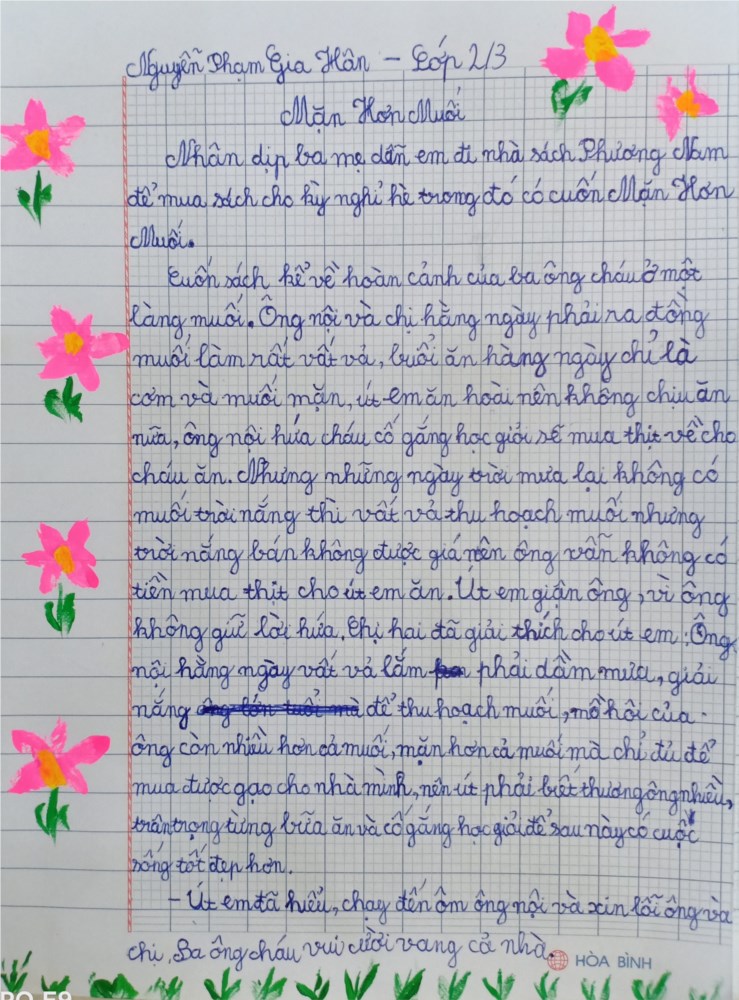 Nguyễn Phạm Gia Hân - Lớp 2/3
Mặn Hơn Muối
Nhân dịp ba mẹ dẫn em đi nhà sách Phương Nam
để mua sách cho kỳ nghỉ hè trong đó có cuốn Mặn Hơn
Muối.
Cuốn sách kể về hoàn cảnh của ba ông cháu ở một
làng muối. Ông nội và chị hằng ngày phải ra đồng
muối làm rất vất vả, buổi ăn hàng ngày chỉ là
cơm và muối mặn, út em ăn hoài nên không chịu ăn
nữa, ông nội hứa cháu cố gắng học giỏi sẽ mua thịt về cho
cháu ăn. Nhưng những ngày trời mưa lại không có
muối trời nắng thì vất vả thu hoạch muối nhưng
trời nắng bán không được giá nên ông vẫn không có
tiền mua thịt cho út em ăn. Út em giận ông, vì ông
không giữ lời hứa. Chị hai đã giải thích cho út em: Ông
nội hằng ngày vất vả lắm phải dầm mưa, giải
nắng ông lớn tuổi mà để thu hoạch muối, mồ hôi của
ông còn nhiều hơn cả muối, mặn hơn cả muối mà chỉ đủ để
mua được gạo cho nhà mình, nên út phải biết thương ông nhiều,
trân trọng từng bữa ăn và cố gắng học giỏi để sau này có cuộc
sống tốt đẹp hơn.
- Út em đã hiểu, chạy đến ôm ông nội và xin lỗi ông và
chị, Ba ông cháu vui cười vang cả nhà.
HÒA BÌNH